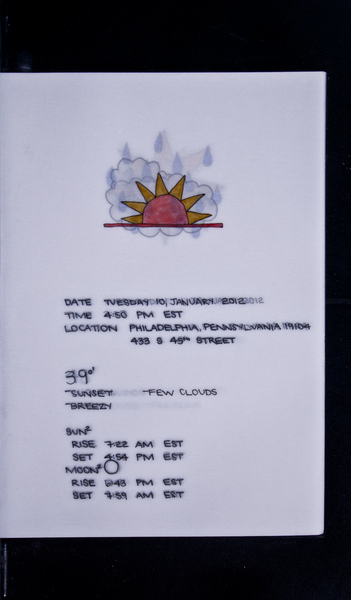 DATE TUESDAY 10, JANUARY 2012
TIME 4:50 PM EST
LOCATION PHILADELPHIA, PENNSYLVANIA 19104
433 S 45TH STREET
39°
SUNSET FEW CLOUDS
BREEZY
SUN
RISE 7:22 AM EST
SET 4:54 PM EST
MOON
RISE 5:43 PM EST
SET 7:59 AM EST